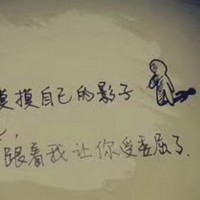 摸摸自己的影子
跟着我让你受委屈了.